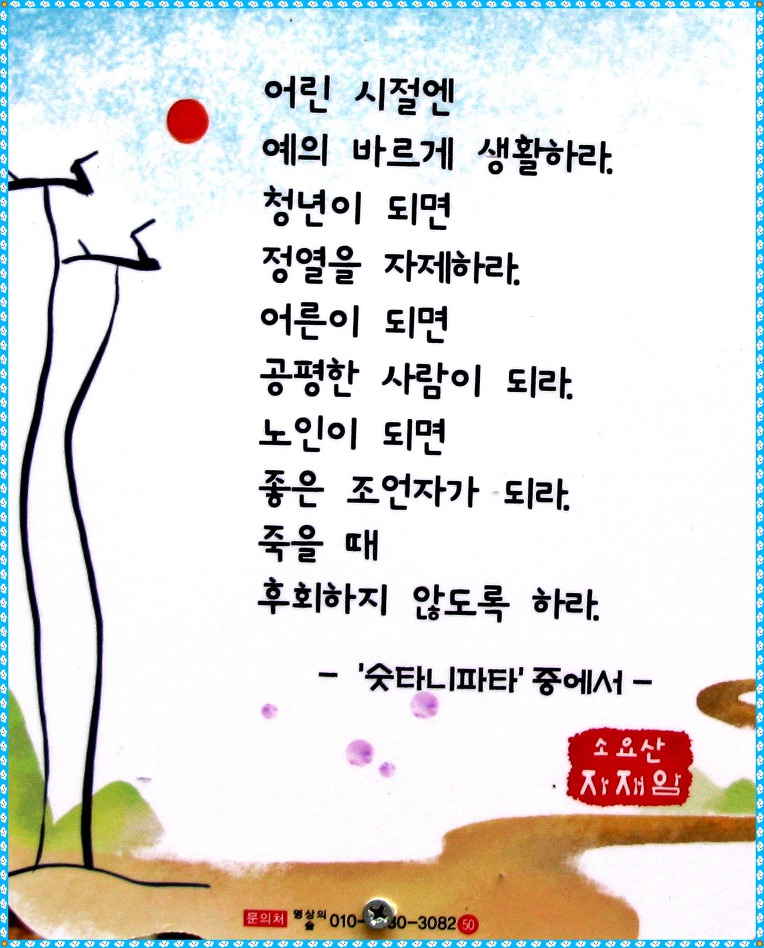 어린 시절엔
예의 바르게 생활하라.
청년이 되면
정열을 자제하라.
어른이 되면
공평한 사람이 되라.
노인이 되면
좋은 조언자가 되라.
죽을 때
후회하지 않도록 하라.
- '숫타니파타' 중에서 -
소요산
자재암
문의처 명상의 숲 010- 30-3082 50